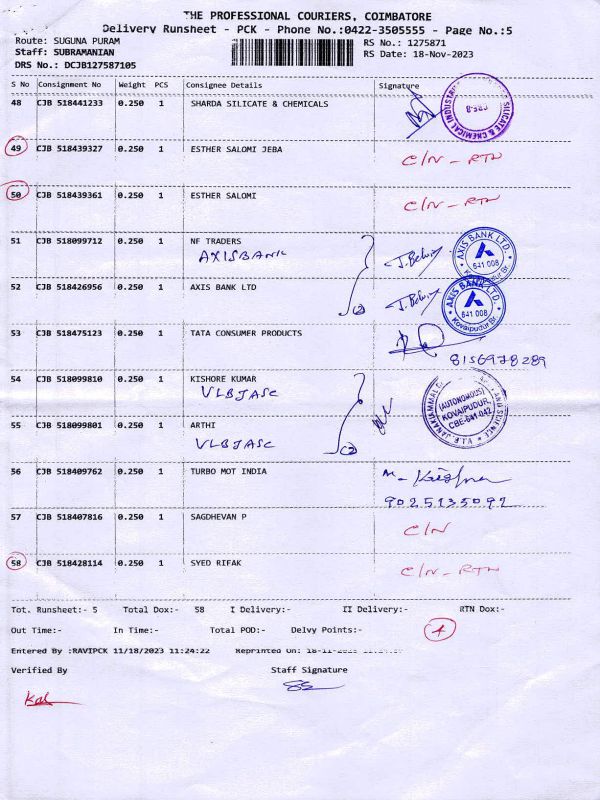 THE PROFESSIONAL COURIERS, COIMBATORE
Delivery Runsheet - PCK - Phone No.:0422-3505555 - Page No.:5
Route: SUGUNA PURAM RS No.: 1275871
Staff: SUBRAMANIAN RS Date: 18-Nov-2023
DRS No.: DCJB127587105
S No Consignment No Weight PCS Consignee Details Signature
48 CJB 518441233 0.250 1 SHARDA SILICATE & CHEMICALS
SILICATE & CHEMICAL INDUSTRI
49 CJB 518439327 0.250 1 ESTHER SALOMI JEBA C/N - RTN
50 CJB 518439361 0.250 1 ESTHER SALOMI C/N - RTN
51 CJB 518099712 0.250 1 NF TRADERS
AXISBANK
AXIS BANK LTD. 641 008 Kovaipudur Br.
52 CJB 518426956 0.250 1 AXIS BANK LTD
(2)
AXIS BANK LTD. 641 008 Kovaipudur Br.
53 CJB 518475123 0.250 1 TATA CONSUMER PRODUCTS
8156978289
54 CJB 518099810 0.250 1 KISHORE KUMAR
VLBJASC
(AUTONOMOUS) KOVAIPUDUR, CBE-641 042 V.L.B. JANAKIAMMAL AND SCIENCE
55 CJB 518099801 0.250 1 ARTHI
VLBJASC (2)
56 CJB 518409762 0.250 1 TURBO MOT INDIA
9025135092
57 CJB 518407816 0.250 1 SAGDHEVAN P C/N
58 CJB 518428114 0.250 1 SYED RIFAK C/N - RTN
Tot. Runsheet:- 5 Total Dox:- 58 I Delivery:- II Delivery:- RTN Dox:-
Out Time:- In Time:- Total POD:- Delvy Points:- 4
Entered By :RAVIPCK 11/18/2023 11:24:22 Reprinted On: 18-11-2023
Verified By Staff Signature